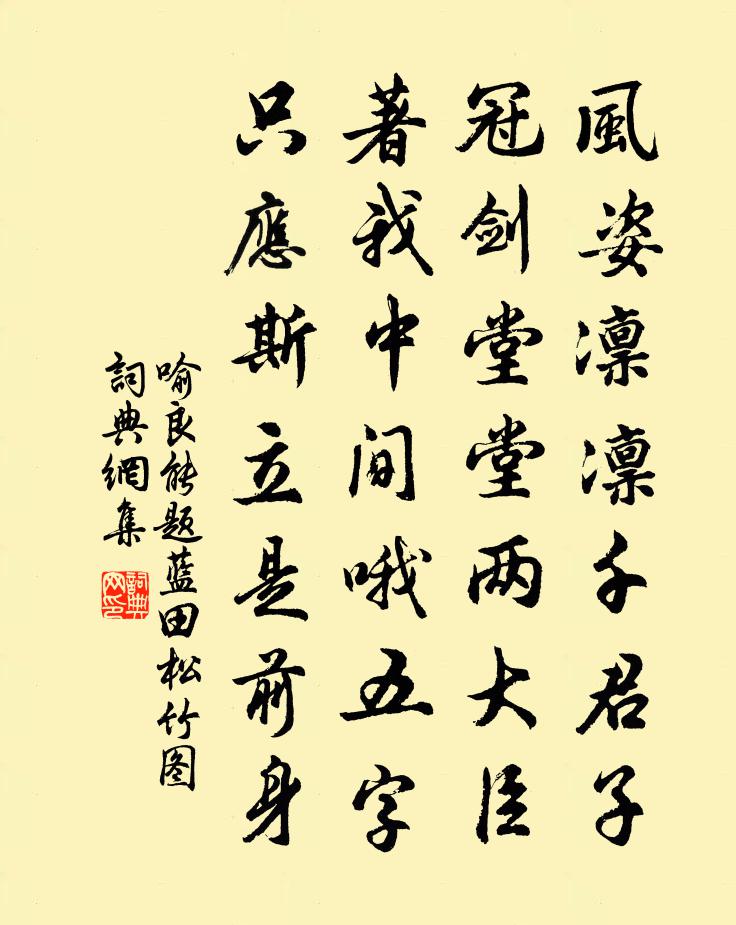 風姿凛凛千君子
冠剑堂堂两大臣
著我中间哦五字
只應斯立是前身
喻良能题蓝田松竹图
詞典網集
詞典网印